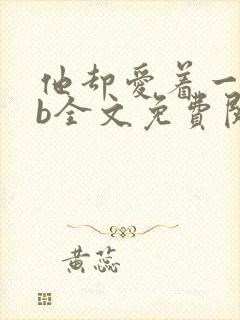 他却爱着一
b全文免费阅
黄蕊